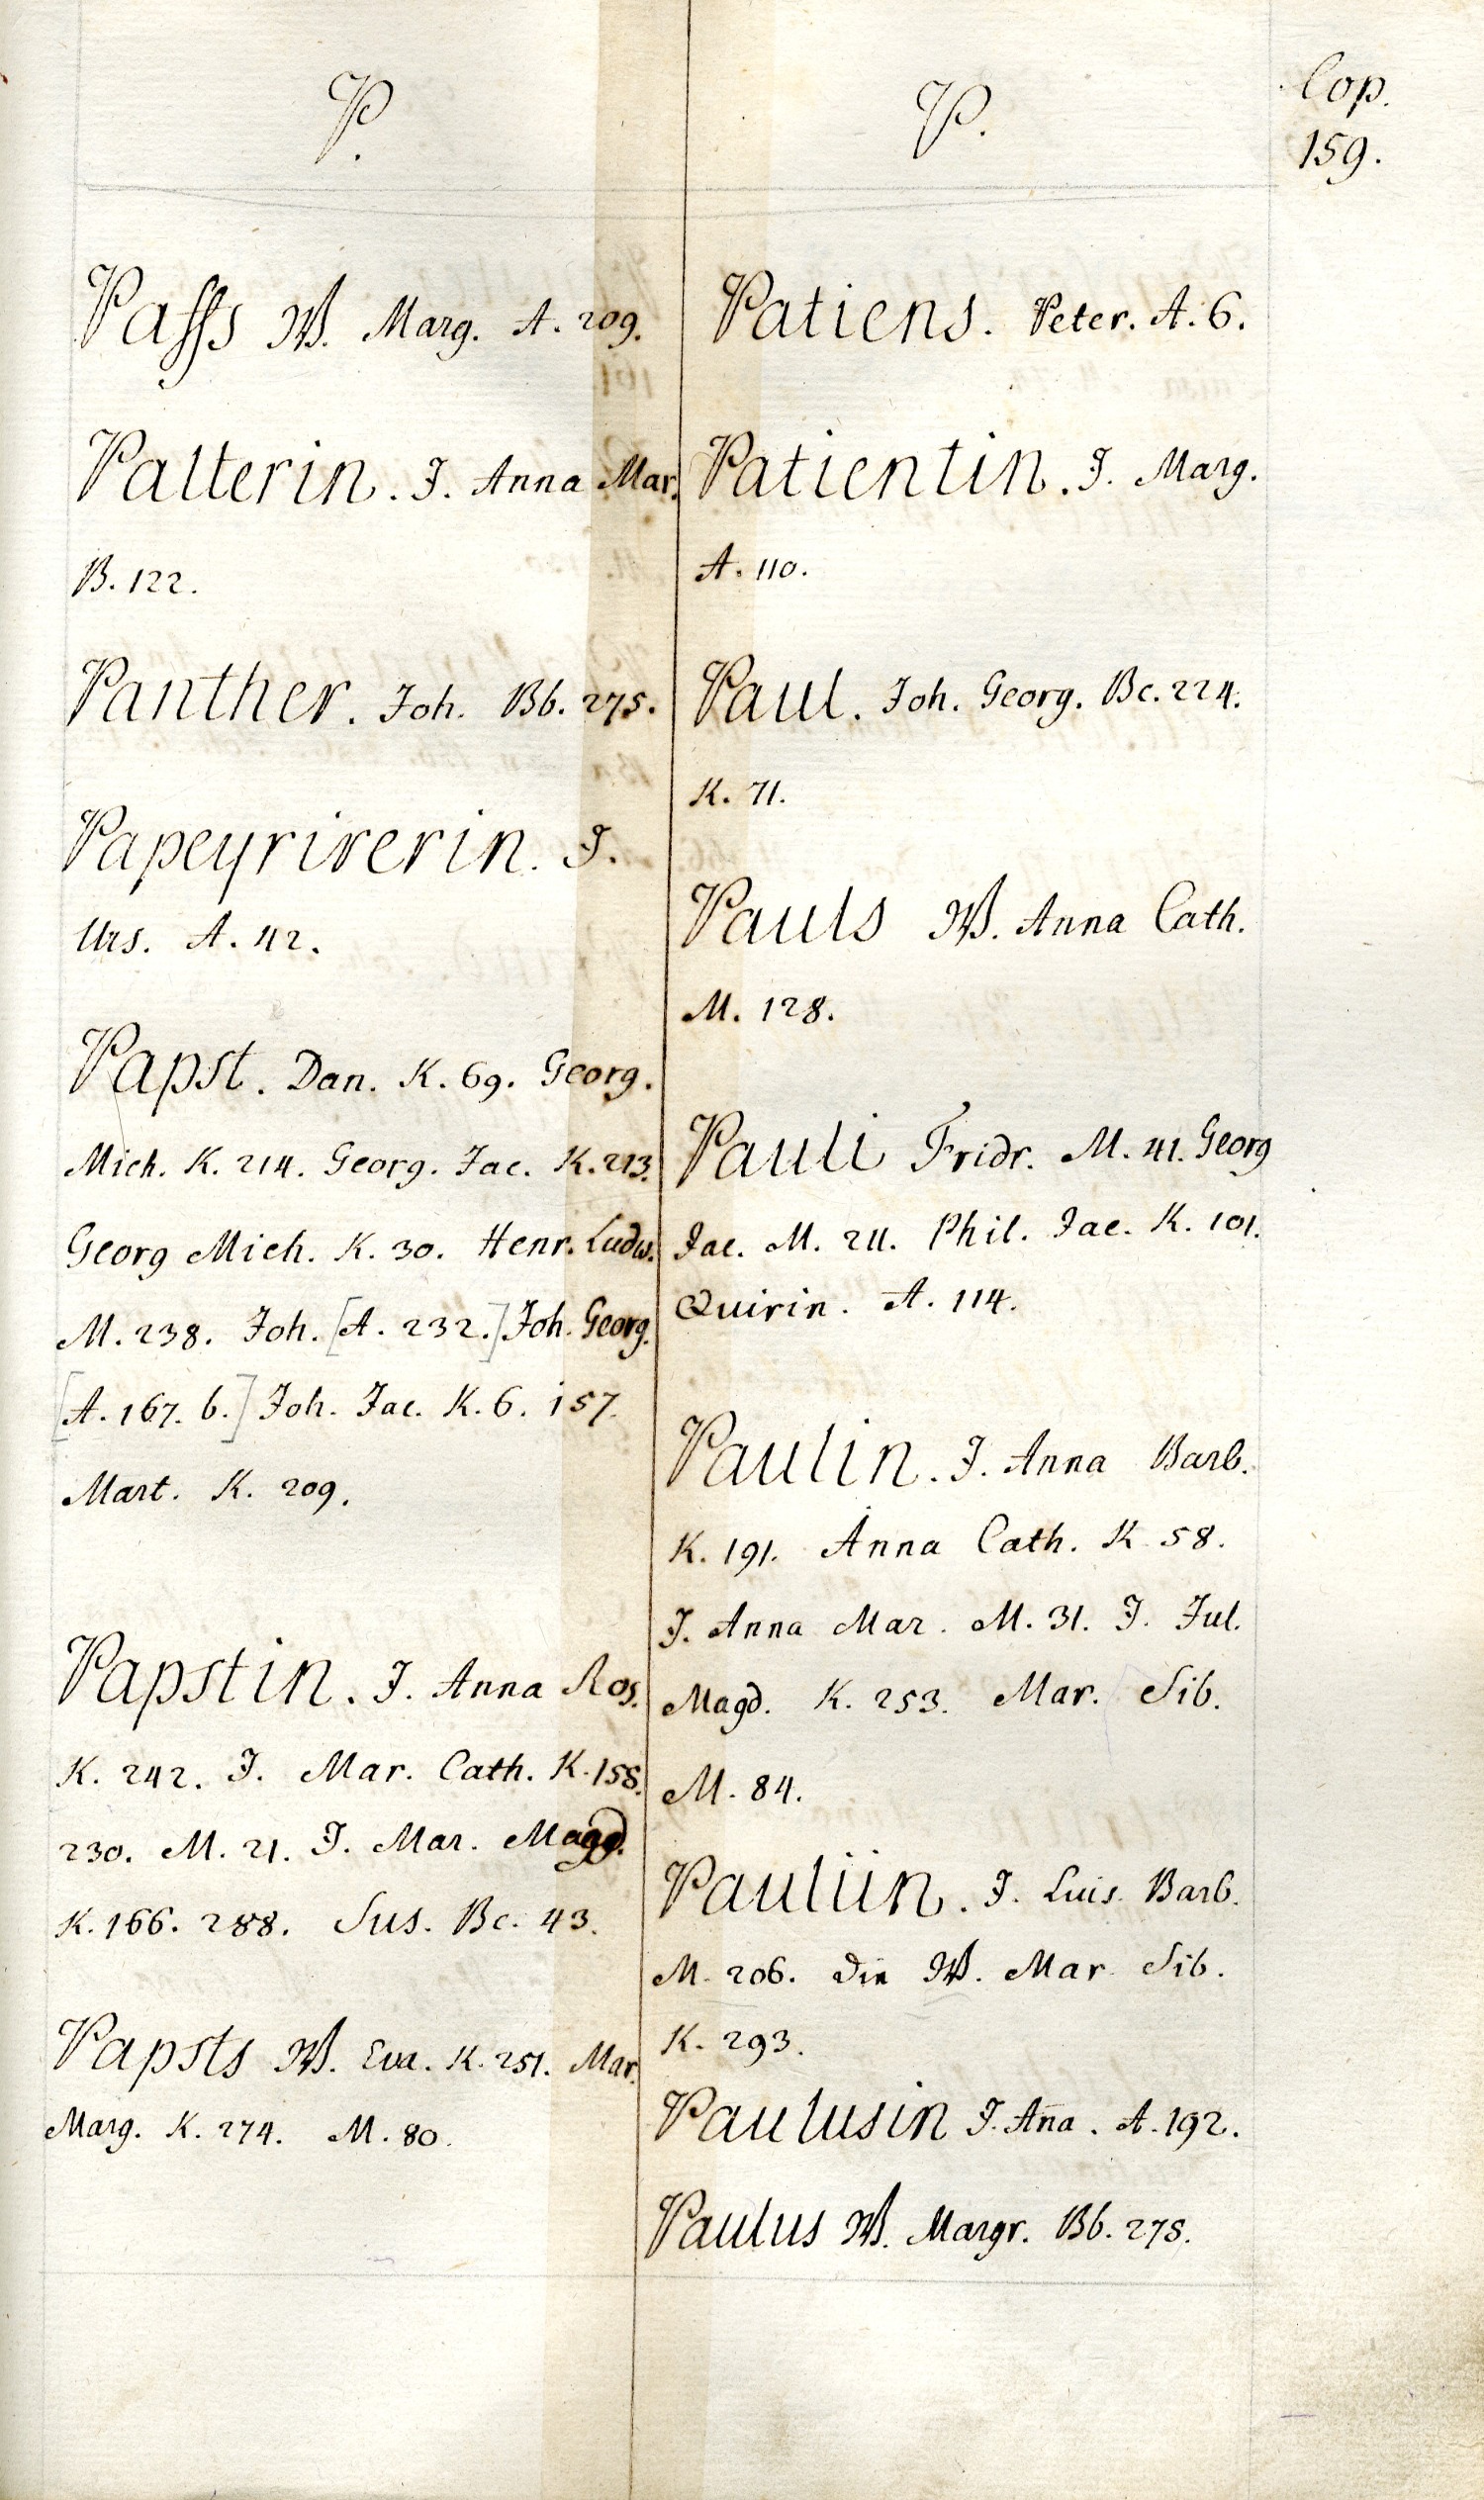 P.
Paffs W. Marg. A. 209.
Palterin. J. Anna Mar.
B. 122.
Panther. Joh. Bb. 275.
Papeyrirerin. J.
Urs. A. 42.
Papst. Dan. K. 69. Georg.
Mich. K. 214. Georg. Jac. K. 213.
Georg Mich. K. 30. Henr. Ludw.
M. 238. Joh. [A. 232.] Joh. Georg.
[A. 167. b.] Joh. Jac. K. 6. 157.
Mart. K. 209.
Papstin. J. Anna Ros.
K. 242. J. Mar. Cath. K. 158.
230. M. 21. J. Mar. Magd.
K. 166. 288. Sus. Bc. 43.
Papsts W. Eva. K. 251. Mar.
Marg. K. 274. M. 80.
P.
Patiens. Peter. A. 6.
Patientin. J. Marg.
A. 110.
Paul. Joh. Georg. Bc. 224.
K. 71.
Pauls W. Anna Cath.
M. 128.
Pauli Fridr. M. 41. Georg
Jac. M. 211. Phil. Jac. K. 101.
Quirin. A. 114.
Paulin. J. Anna Barb.
K. 191. Anna Cath. K. 58.
J. Anna Mar. M. 31. J. Jul.
Magd. K. 253. Mar. Sib.
M. 84.
Pauliin. J. Luis. Barb.
M. 206. die W. Mar. Sib.
K. 293.
Paulusin J. Aña. A. 192.
Paulus W. Margr. Bb. 275.
Cop.
159.